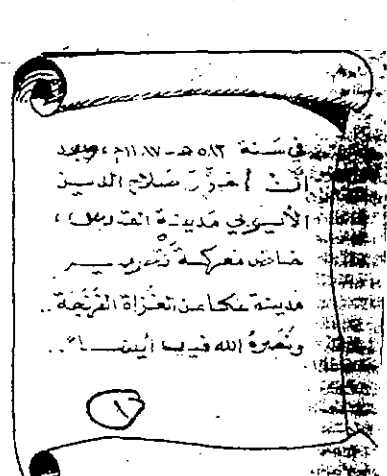 في سَنة ٥٨٣ هـ - ١١٨٧م، وبعد
أنْ أحرَزَ صَلاح الديــن
الأيوبي مَدينة القدس،
خاض معركـة تَحريـــر
مدينة عكا من الغُزاة الفَرنجَة..
ونَصَرهُ الله فيــها أيضــاً..
١